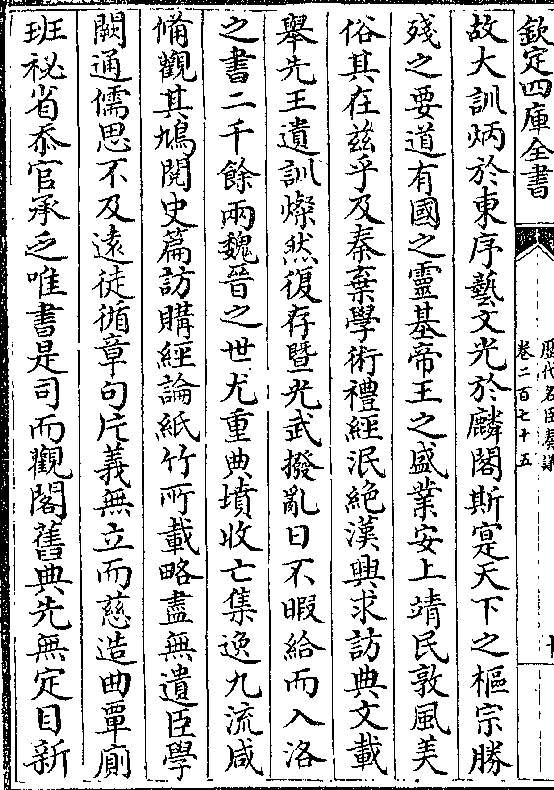 欽定四庫全書
歷代名臣奏議
卷二百七十五
故大訓炳於東序藝文光於麟閣斯寔天下之樞宗勝
殘之要道有國之靈基帝王之盛業安上靖民敦風美
俗其在兹乎及秦棄學術禮經泯絕漢興求訪典文載
舉先王遺訓燦然復存暨光武撥亂日不暇給而入洛
之書二千餘兩魏晉之世尤重典墳收亡集逸九流咸
備觀其鳩閱史篇訪購經論紙竹所載略盡無遺臣學
闕通儒思不及遠徒循章句片義無立而慈造曲覃廁
班祕省忝官承乏唯書是司而觀閣舊典先無定目新